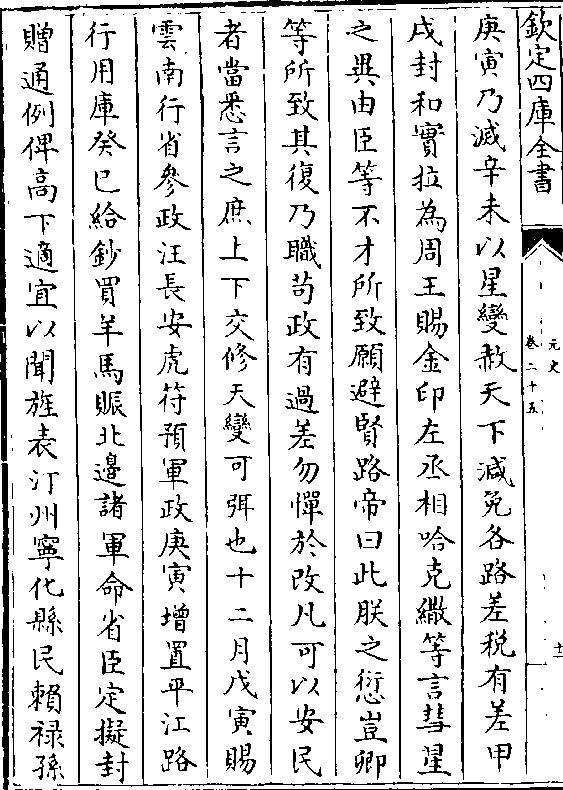 欽定四庫全書
元史
卷二十五
十二
庚寅乃滅辛未以星變赦天下減免各路差税有差甲
戌封和實拉為周王賜金印左丞相哈克繖等言彗星
之異由臣等不才所致願避賢路帝曰此朕之愆豈卿
等所致其復乃職苟政有過差勿憚於改凡可以安民
者當悉言之庶上下交修天變可弭也十二月戊寅賜
雲南行省參政汪長安虎符預軍政庚寅增置平江路
行用庫癸巳給鈔買羊馬賑北邊諸軍命省臣定擬封
贈通例俾高下適宜以聞旌表汀州寧化縣民賴禄孫